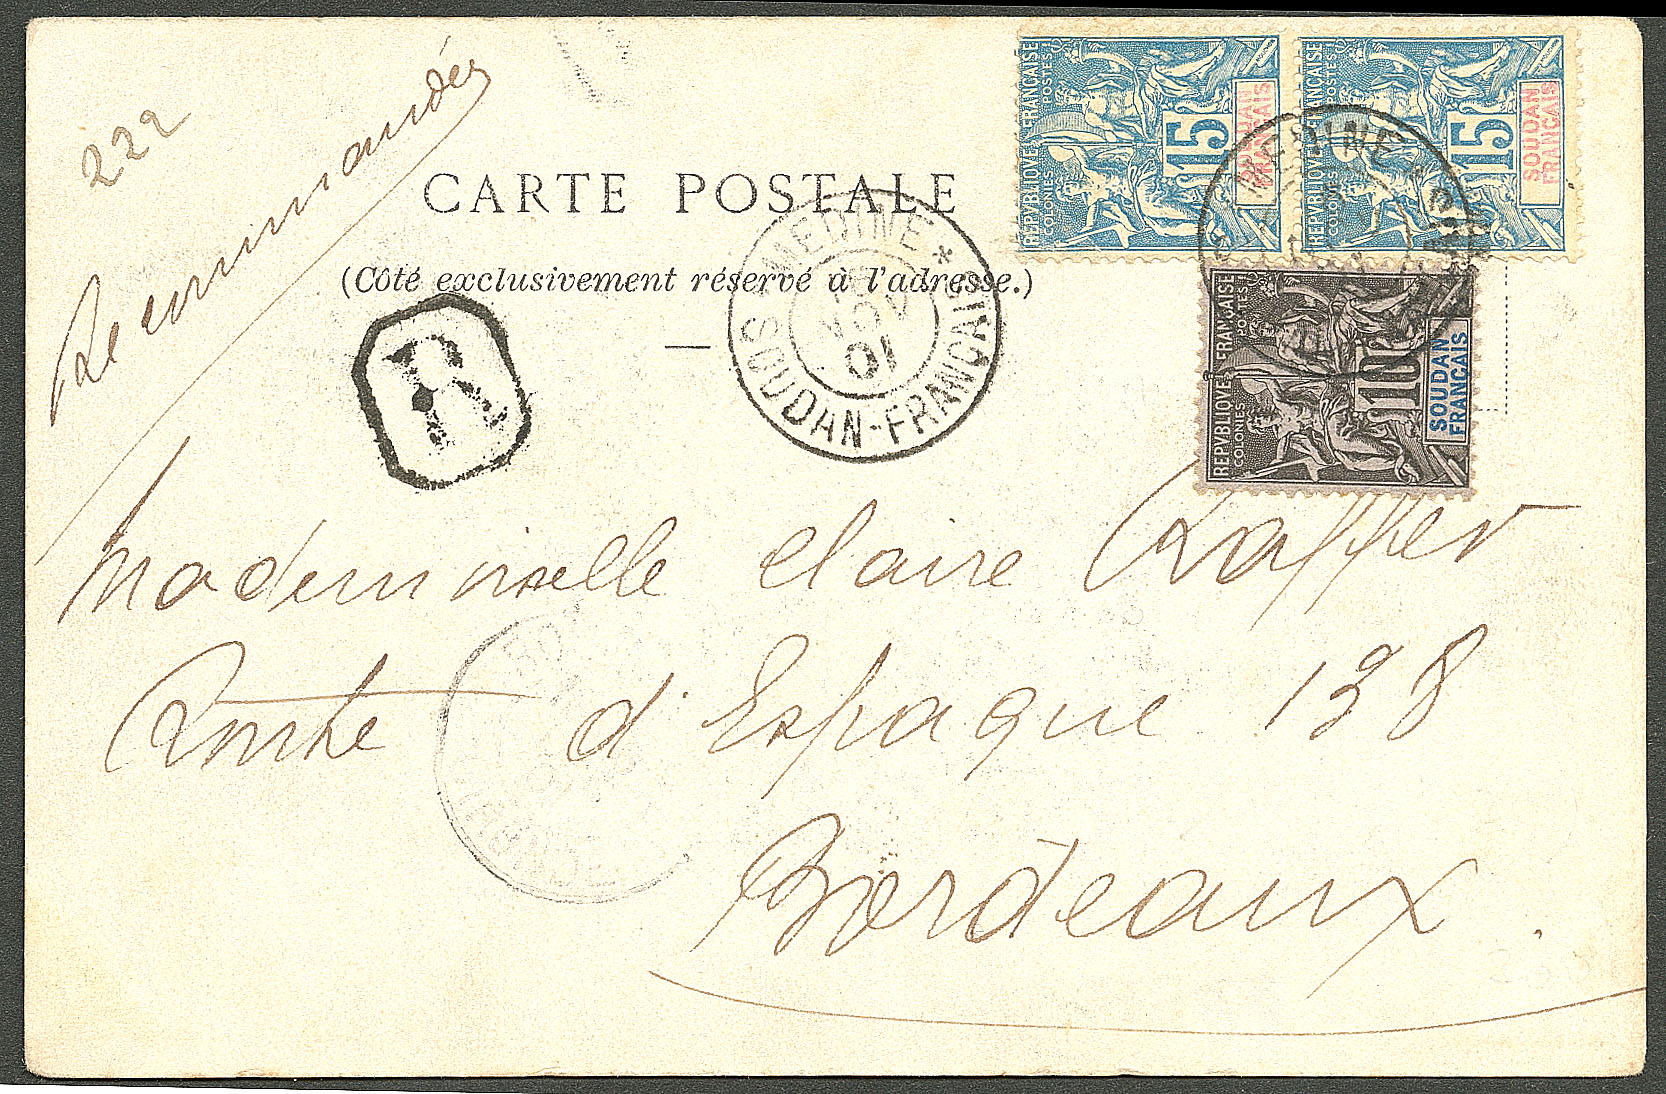 222
Recommandés
CARTE POSTALE
(Côté exclusivement réservé à l'adresse.)
R
MEDINE *
NOV
01
SOUDAN-FRANÇAIS
REPVBLIQVE FRANÇAISE
COLONIES POSTES
15
SOUDAN
FRANÇAIS
REPVBLIQVE FRANÇAISE
COLONIES POSTES
15
SOUDAN
FRANÇAIS
MEDINE
REPVBLIQVE FRANÇAISE
COLONIES POSTES
10
SOUDAN
FRANÇAIS
Mademoiselle Claire
Route d'Espagne 138
Bordeaux.